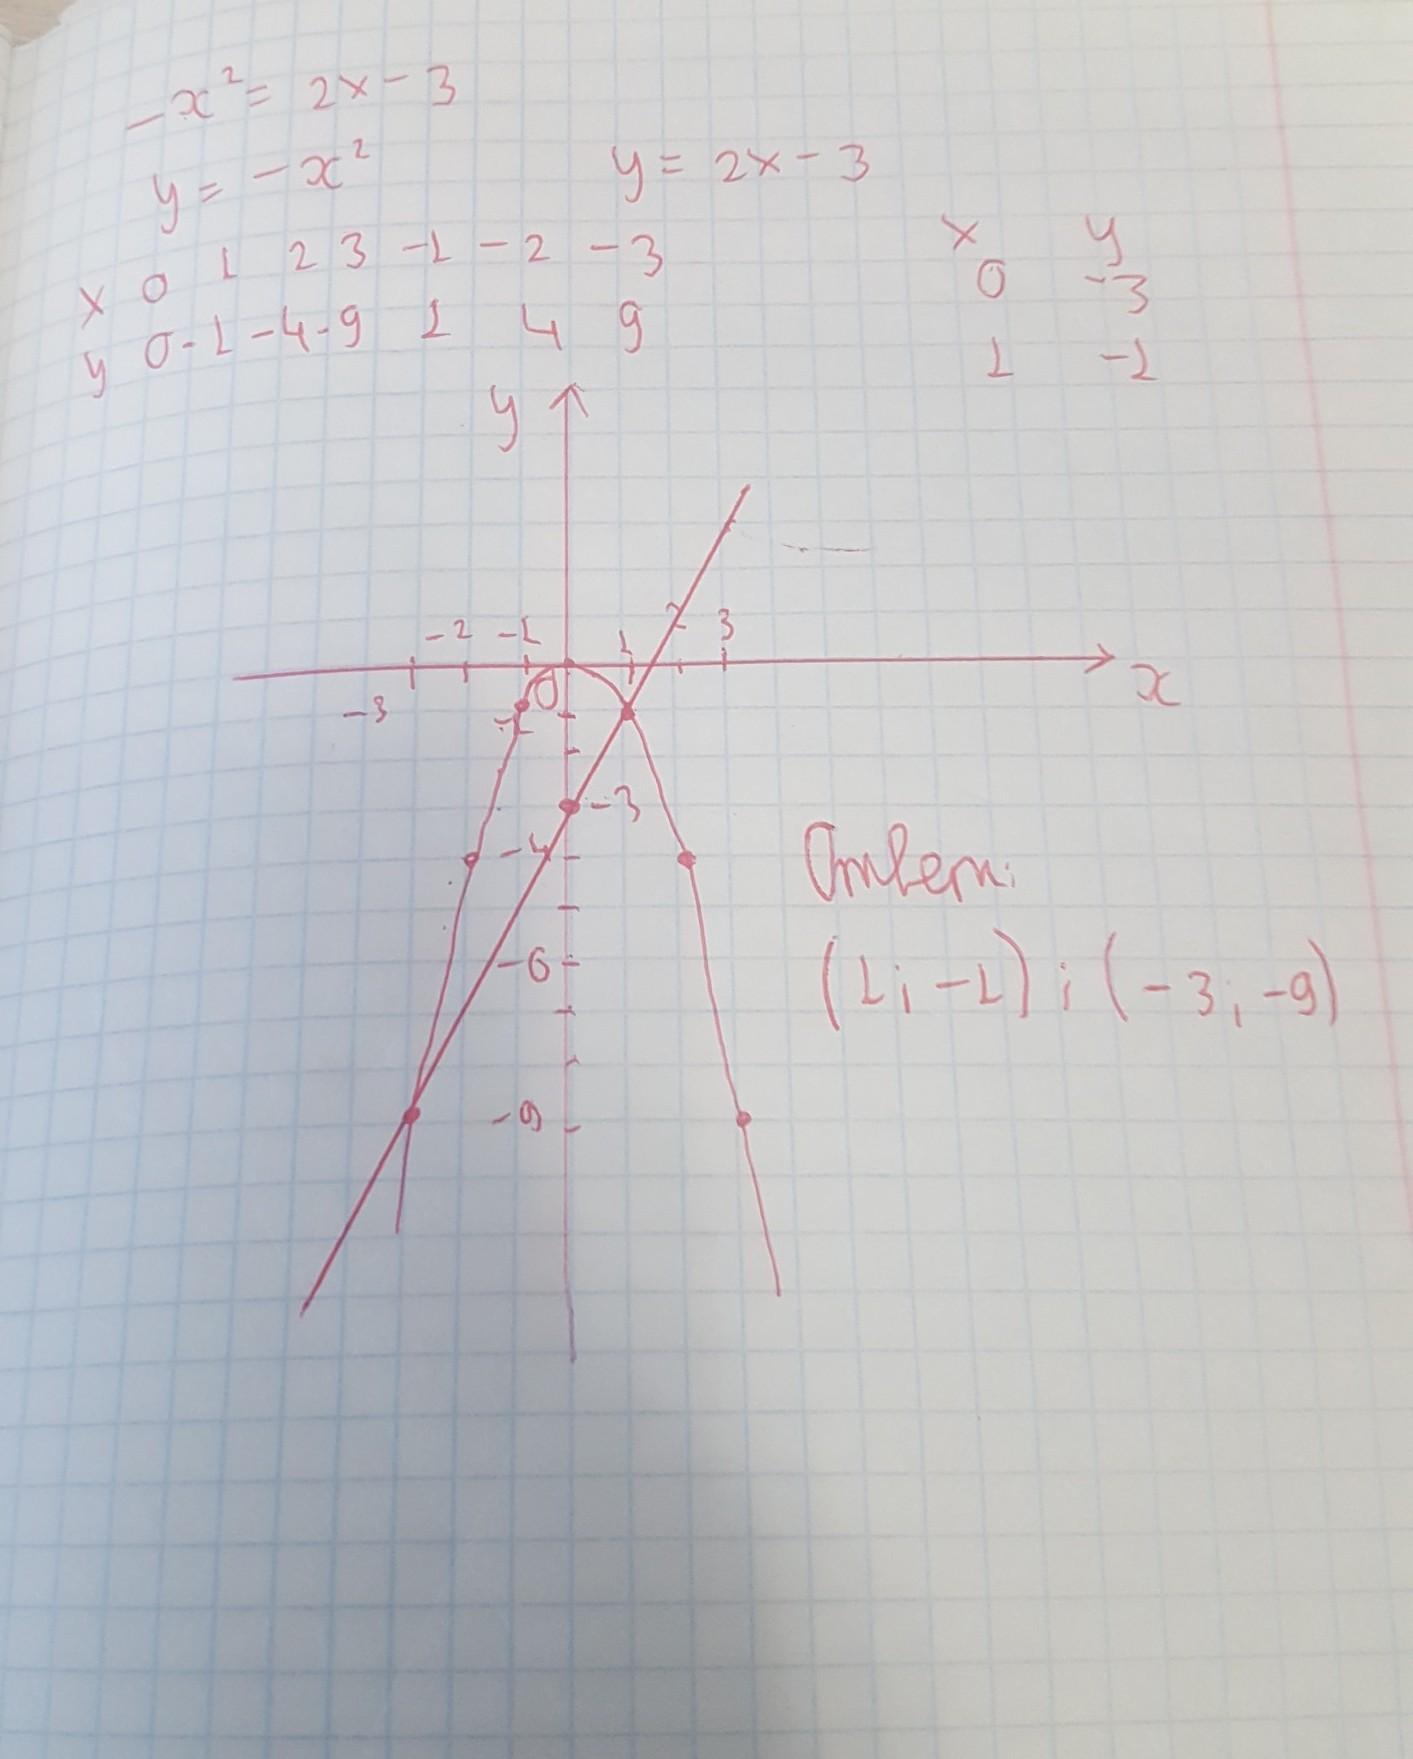 -x² = 2x - 3
y = -x² y = 2x - 3
x 0 1 2 3 -1 -2 -3
y 0 -1 -4 -9 1 4 9
x y
0 -3
1 -1
y
-2 -1 1 2 3
-3 0 x
-1
-3
-4
-6
-9
Ответ:
(1; -1); (-3; -9)